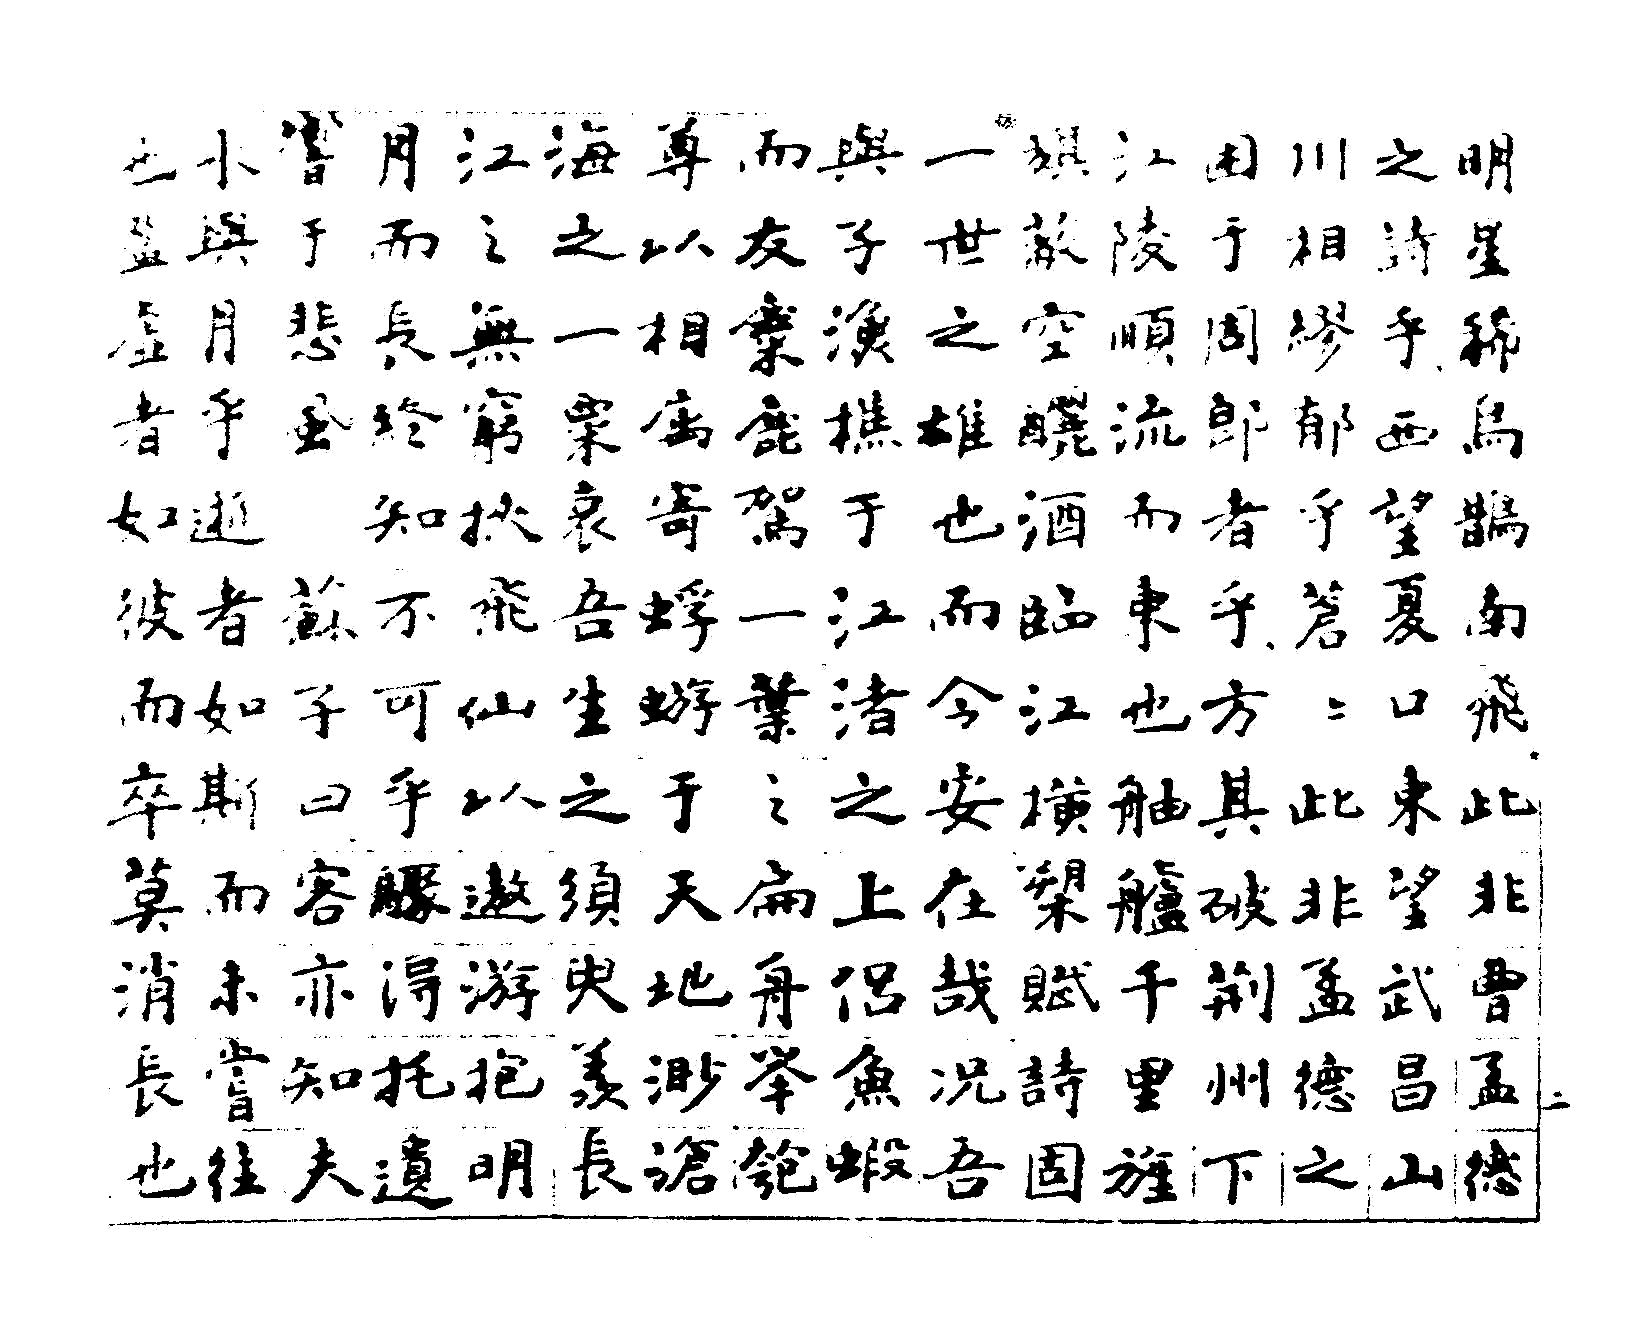 明星稀烏鵲南飛此非曹孟德
之詩乎西望夏口東望武昌山
川相繆郁乎蒼〻此非孟德之
困于周郎者乎方其破荊州下
江陵順流而東也舳艫千里旌
旗蔽空釃酒臨江橫槊賦詩固
一世之雄也而今安在哉况吾
與子漁樵于江渚之上侶魚蝦
而友麋鹿駕一葉之扁舟舉匏
尊以相屬寄蜉蝣于天地渺滄
海之一粟哀吾生之須臾羨長
江之無窮挾飛仙以遨游抱明
月而長終知不可乎驟得托遺
響于悲風 蘇子曰客亦知夫
水與月乎逝者如斯而未嘗往
也盈虛者如彼而卒莫消長也
二